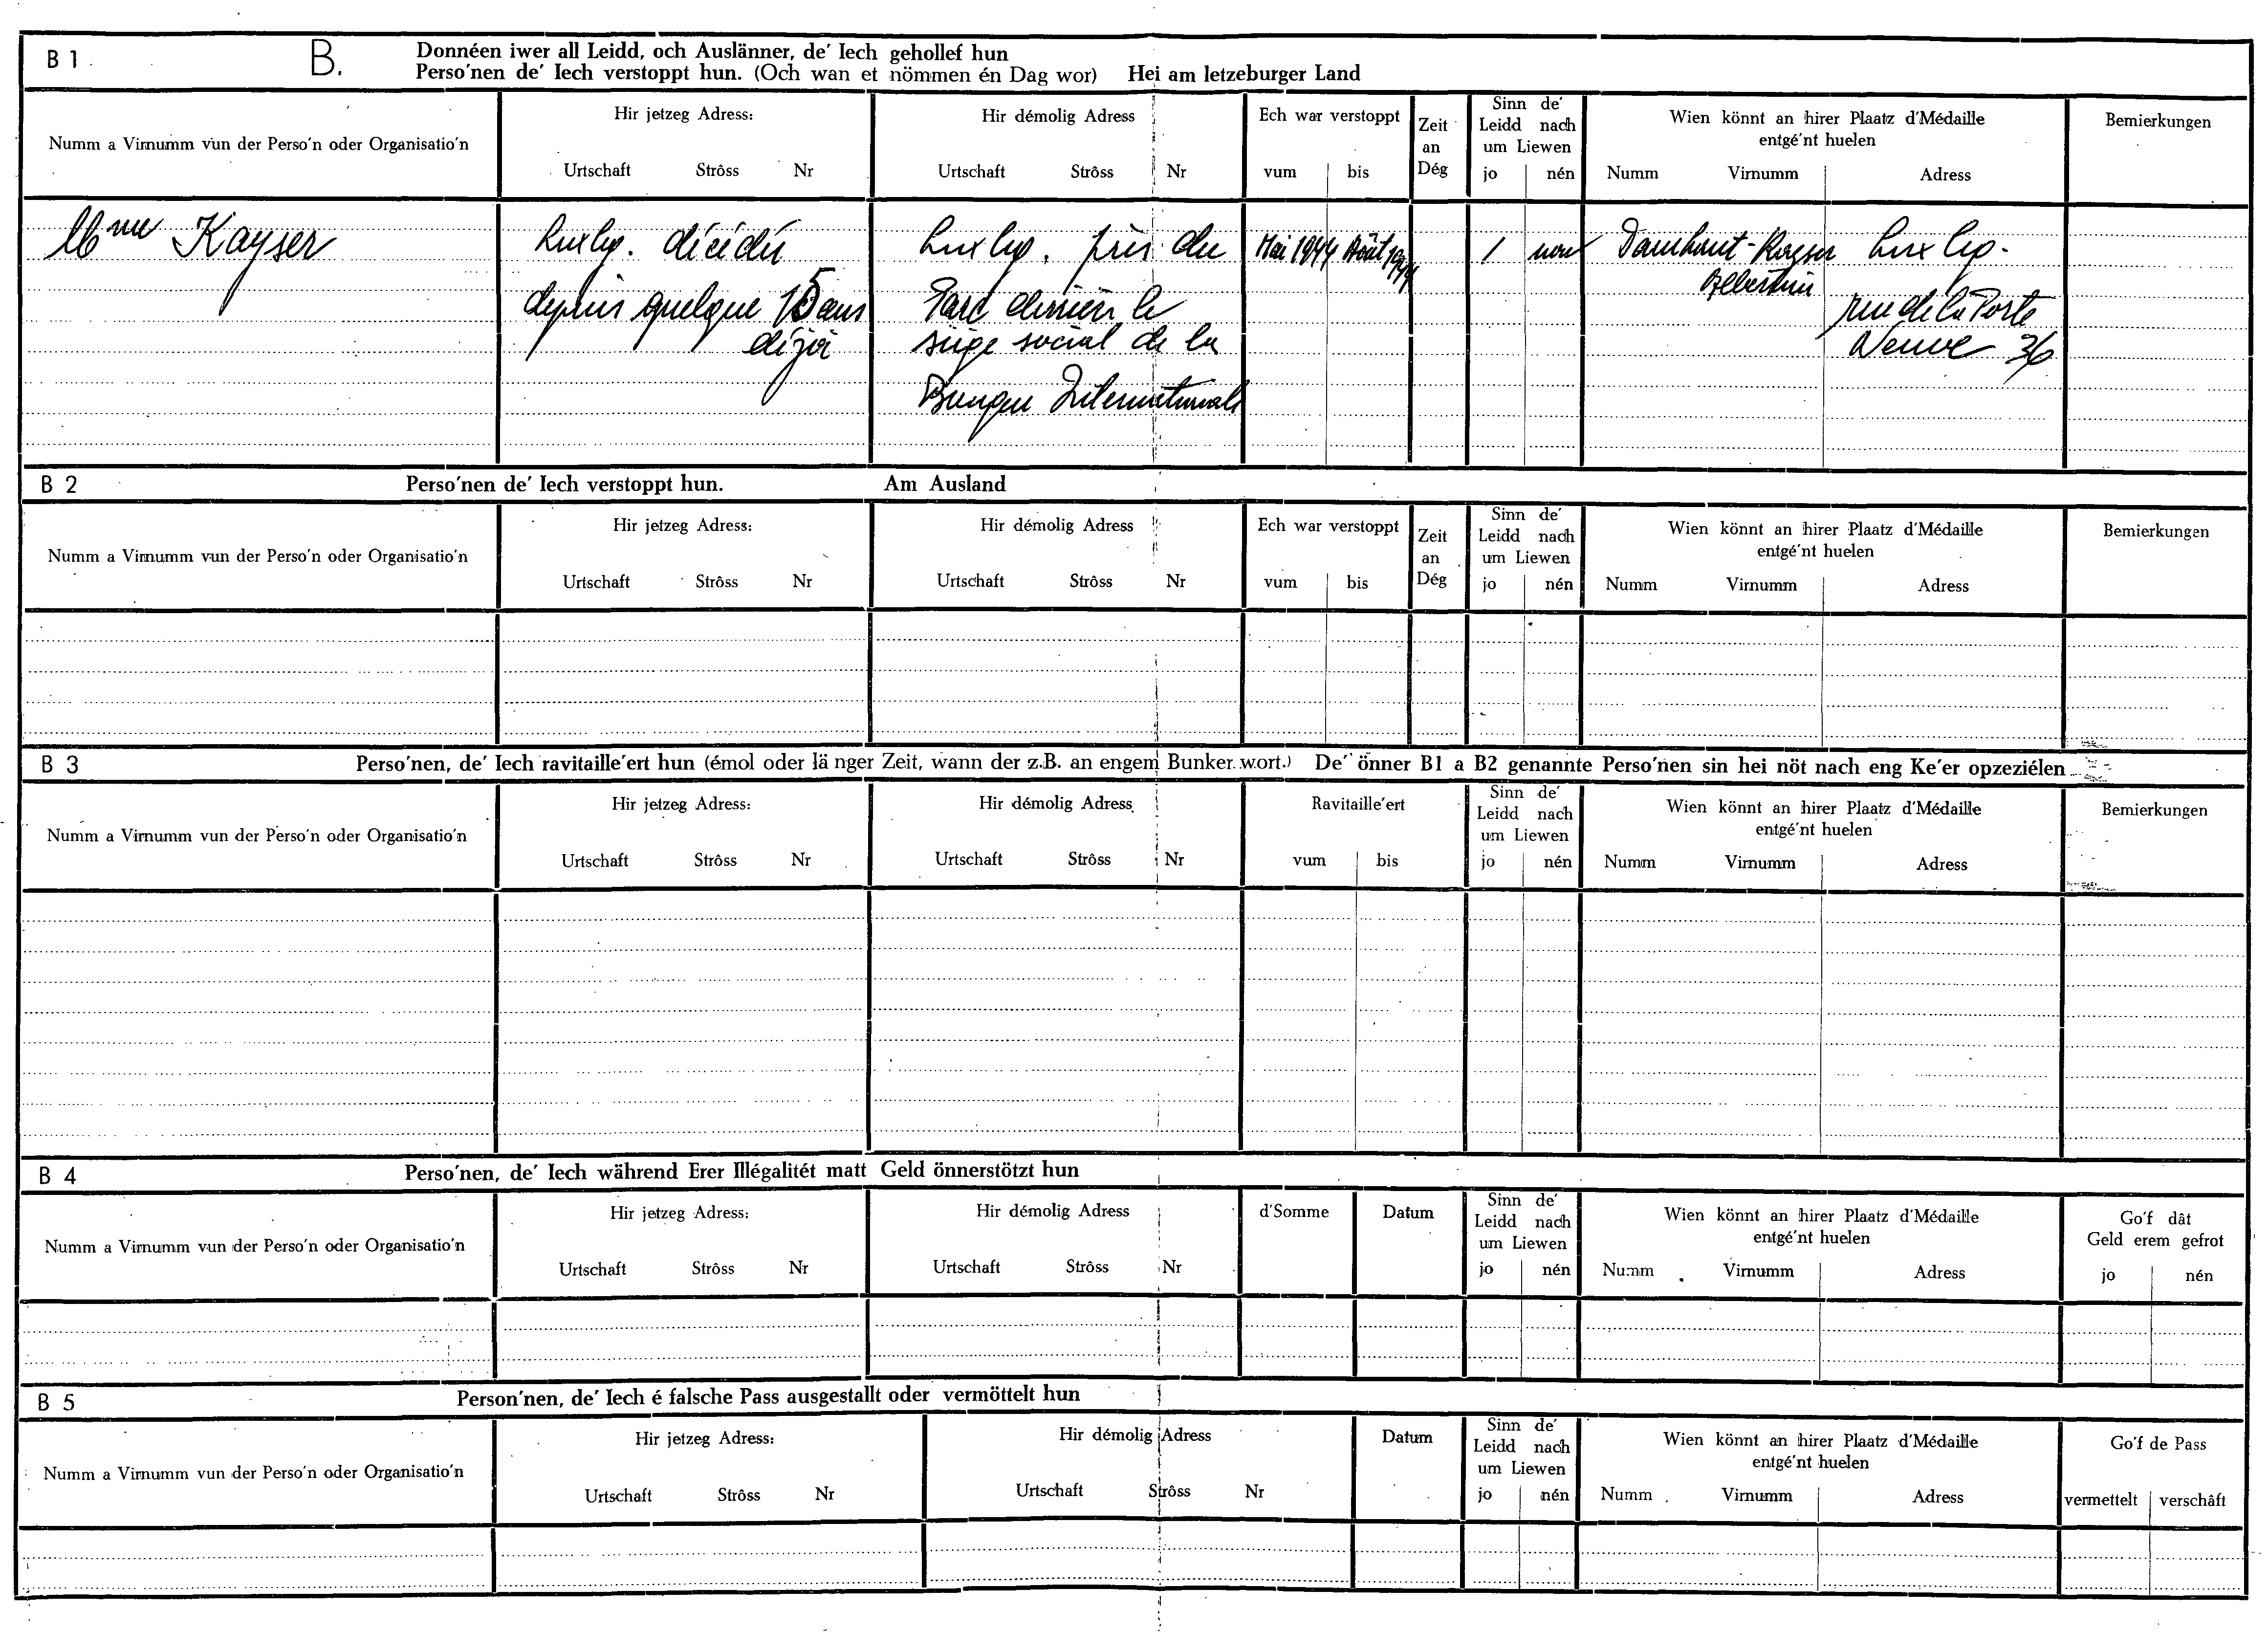 B 1 B. Donnéen iwer all Leidd, och Auslänner, de' Iech gehollef hun
Perso'nen de' Iech verstoppt hun. (Och wan et nömmen én Dag wor) Hei am letzeburger Land
Numm a Virnumm vun der Perso'n oder Organisatio'n
Hir jetzeg Adress:
Urtschaft Strôss Nr
Hir démolig Adress
Urtschaft Strôss Nr
Ech war verstoppt
vum bis
Zeit
an
Dég
Sinn de'
Leidd nach
um Liewen
jo nén
Wien könnt an hirer Plaatz d'Médaille
entgé'nt huelen
Numm Virnumm Adress
Bemierkungen
Mme Kayser
Luxbg. décédée
depuis quelque 15 ans
déjà
Luxbg. près du
Parc derrière le
siège social de la
Banque Internationale
Mai 1944 Août 1944
/ non
Kayser
Albertine
Luxbg.
rue de la Porte
Neuve 36
B 2 Perso'nen de' Iech verstoppt hun. Am Ausland
Numm a Virnumm vun der Perso'n oder Organisatio'n
Hir jetzeg Adress:
Urtschaft Strôss Nr
Hir démolig Adress
Urtschaft Strôss Nr
Ech war verstoppt
vum bis
Zeit
an
Dég
Sinn de'
Leidd nach
um Liewen
jo nén
Wien könnt an hirer Plaatz d'Médaille
entgé'nt huelen
Numm Virnumm Adress
Bemierkungen
B 3 Perso'nen, de' Iech ravitaille'ert hun (émol oder länger Zeit, wann der z.B. an engem Bunker wort.) De' önner B1 a B2 genannte Perso'nen sin hei nöt nach eng Ke'er opzeziélen
Numm a Virnumm vun der Perso'n oder Organisatio'n
Hir jetzeg Adress:
Urtschaft Strôss Nr
Hir démolig Adress
Urtschaft Strôss Nr
Ravitaille'ert
vum bis
Sinn de'
Leidd nach
um Liewen
jo nén
Wien könnt an hirer Plaatz d'Médaille
entgé'nt huelen
Numm Virnumm Adress
Bemierkungen
B 4 Perso'nen, de' Iech während Erer Illégalitét matt Geld önnerstötzt hun
Numm a Virnumm vun der Perso'n oder Organisatio'n
Hir jetzeg Adress:
Urtschaft Strôss Nr
Hir démolig Adress
Urtschaft Strôss Nr
d'Somme
Datum
Sinn de'
Leidd nach
um Liewen
jo nén
Wien könnt an hirer Plaatz d'Médaille
entgé'nt huelen
Numm Virnumm Adress
Go'f dât
Geld erem gefrot
jo nén
B 5 Person'nen, de' Iech é falsche Pass ausgestallt oder vermöttelt hun
Numm a Virnumm vun der Perso'n oder Organisatio'n
Hir jetzeg Adress:
Urtschaft Strôss Nr
Hir démolig Adress
Urtschaft Strôss Nr
Datum
Sinn de'
Leidd nach
um Liewen
jo nén
Wien könnt an hirer Plaatz d'Médaille
entgé'nt huelen
Numm Virnumm Adress
Go'f de Pass
vermettelt verschâft